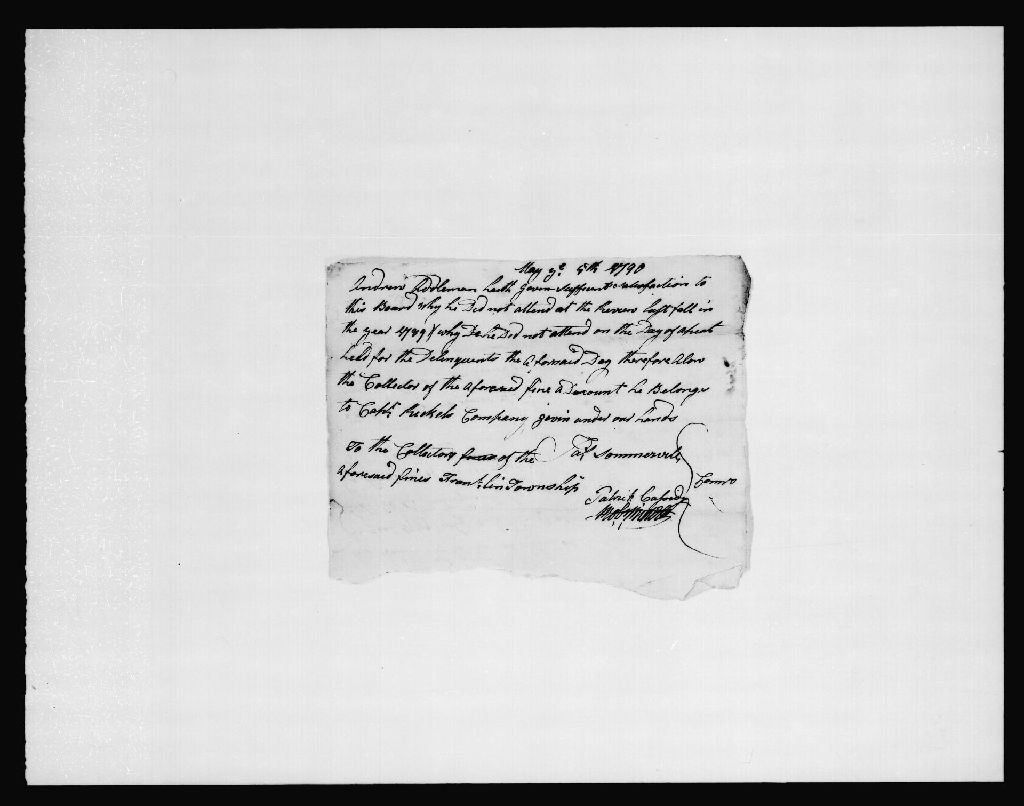 May ye 5th 1790
Andrew Adleman hath given suffient satisfaction to
this Board why he Did not attend at the Review last fall in
the year 1789 & why he Did not attend on the Day of apeal
held for the Delinquents the aforesaid Day therefore Alow
the Collector of the aforesaid fine a Discount he Belongs
to Captn Rickets Company given under our hands
To the Collectors of the Jas Sommervile
aforesaid fines Franklin Township
Patrick Cassedy
Comrs